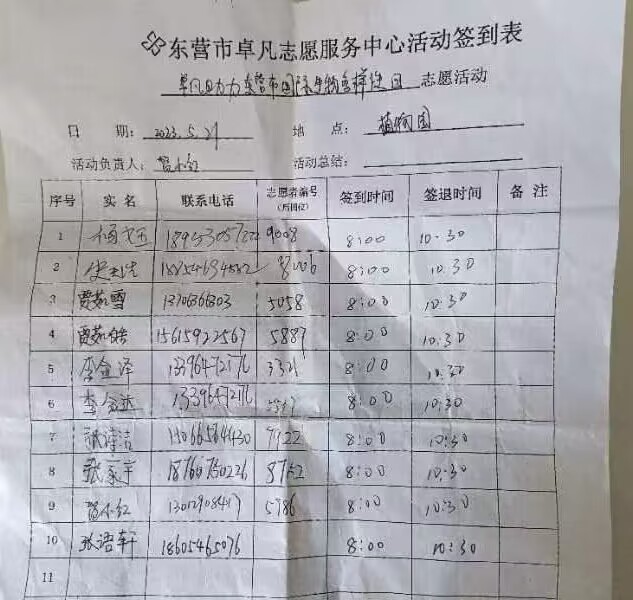 东营市卓凡志愿服务中心活动签到表
卓凡助力东营市国际生物多样性日 志愿活动
日 期： 2023.5.21 地 点： 植物园
活动负责人： 贺小红 活动总结：
序号 实名 联系电话 志愿者编号（后四位） 签到时间 签退时间 备注
1 9008 8:00 10.30
2 8006 8:00 10.30
3 贾茹雪 5058 8:00 10:30
4 贾茹皓 15615922567 5887 8:00 10:30
5 李金泽 13396472176 3321 8:00 10.30
6 李金达 13396472176 8:00 10:30
7 张澪洁 15066564430 7922 8:00 10:30
8 张家宇 18766750226 8752 8:00 10:30
9 贺小红 13012908417 5986 8:00 10:30
10 张语轩 18605465076 8:00 10:30
11